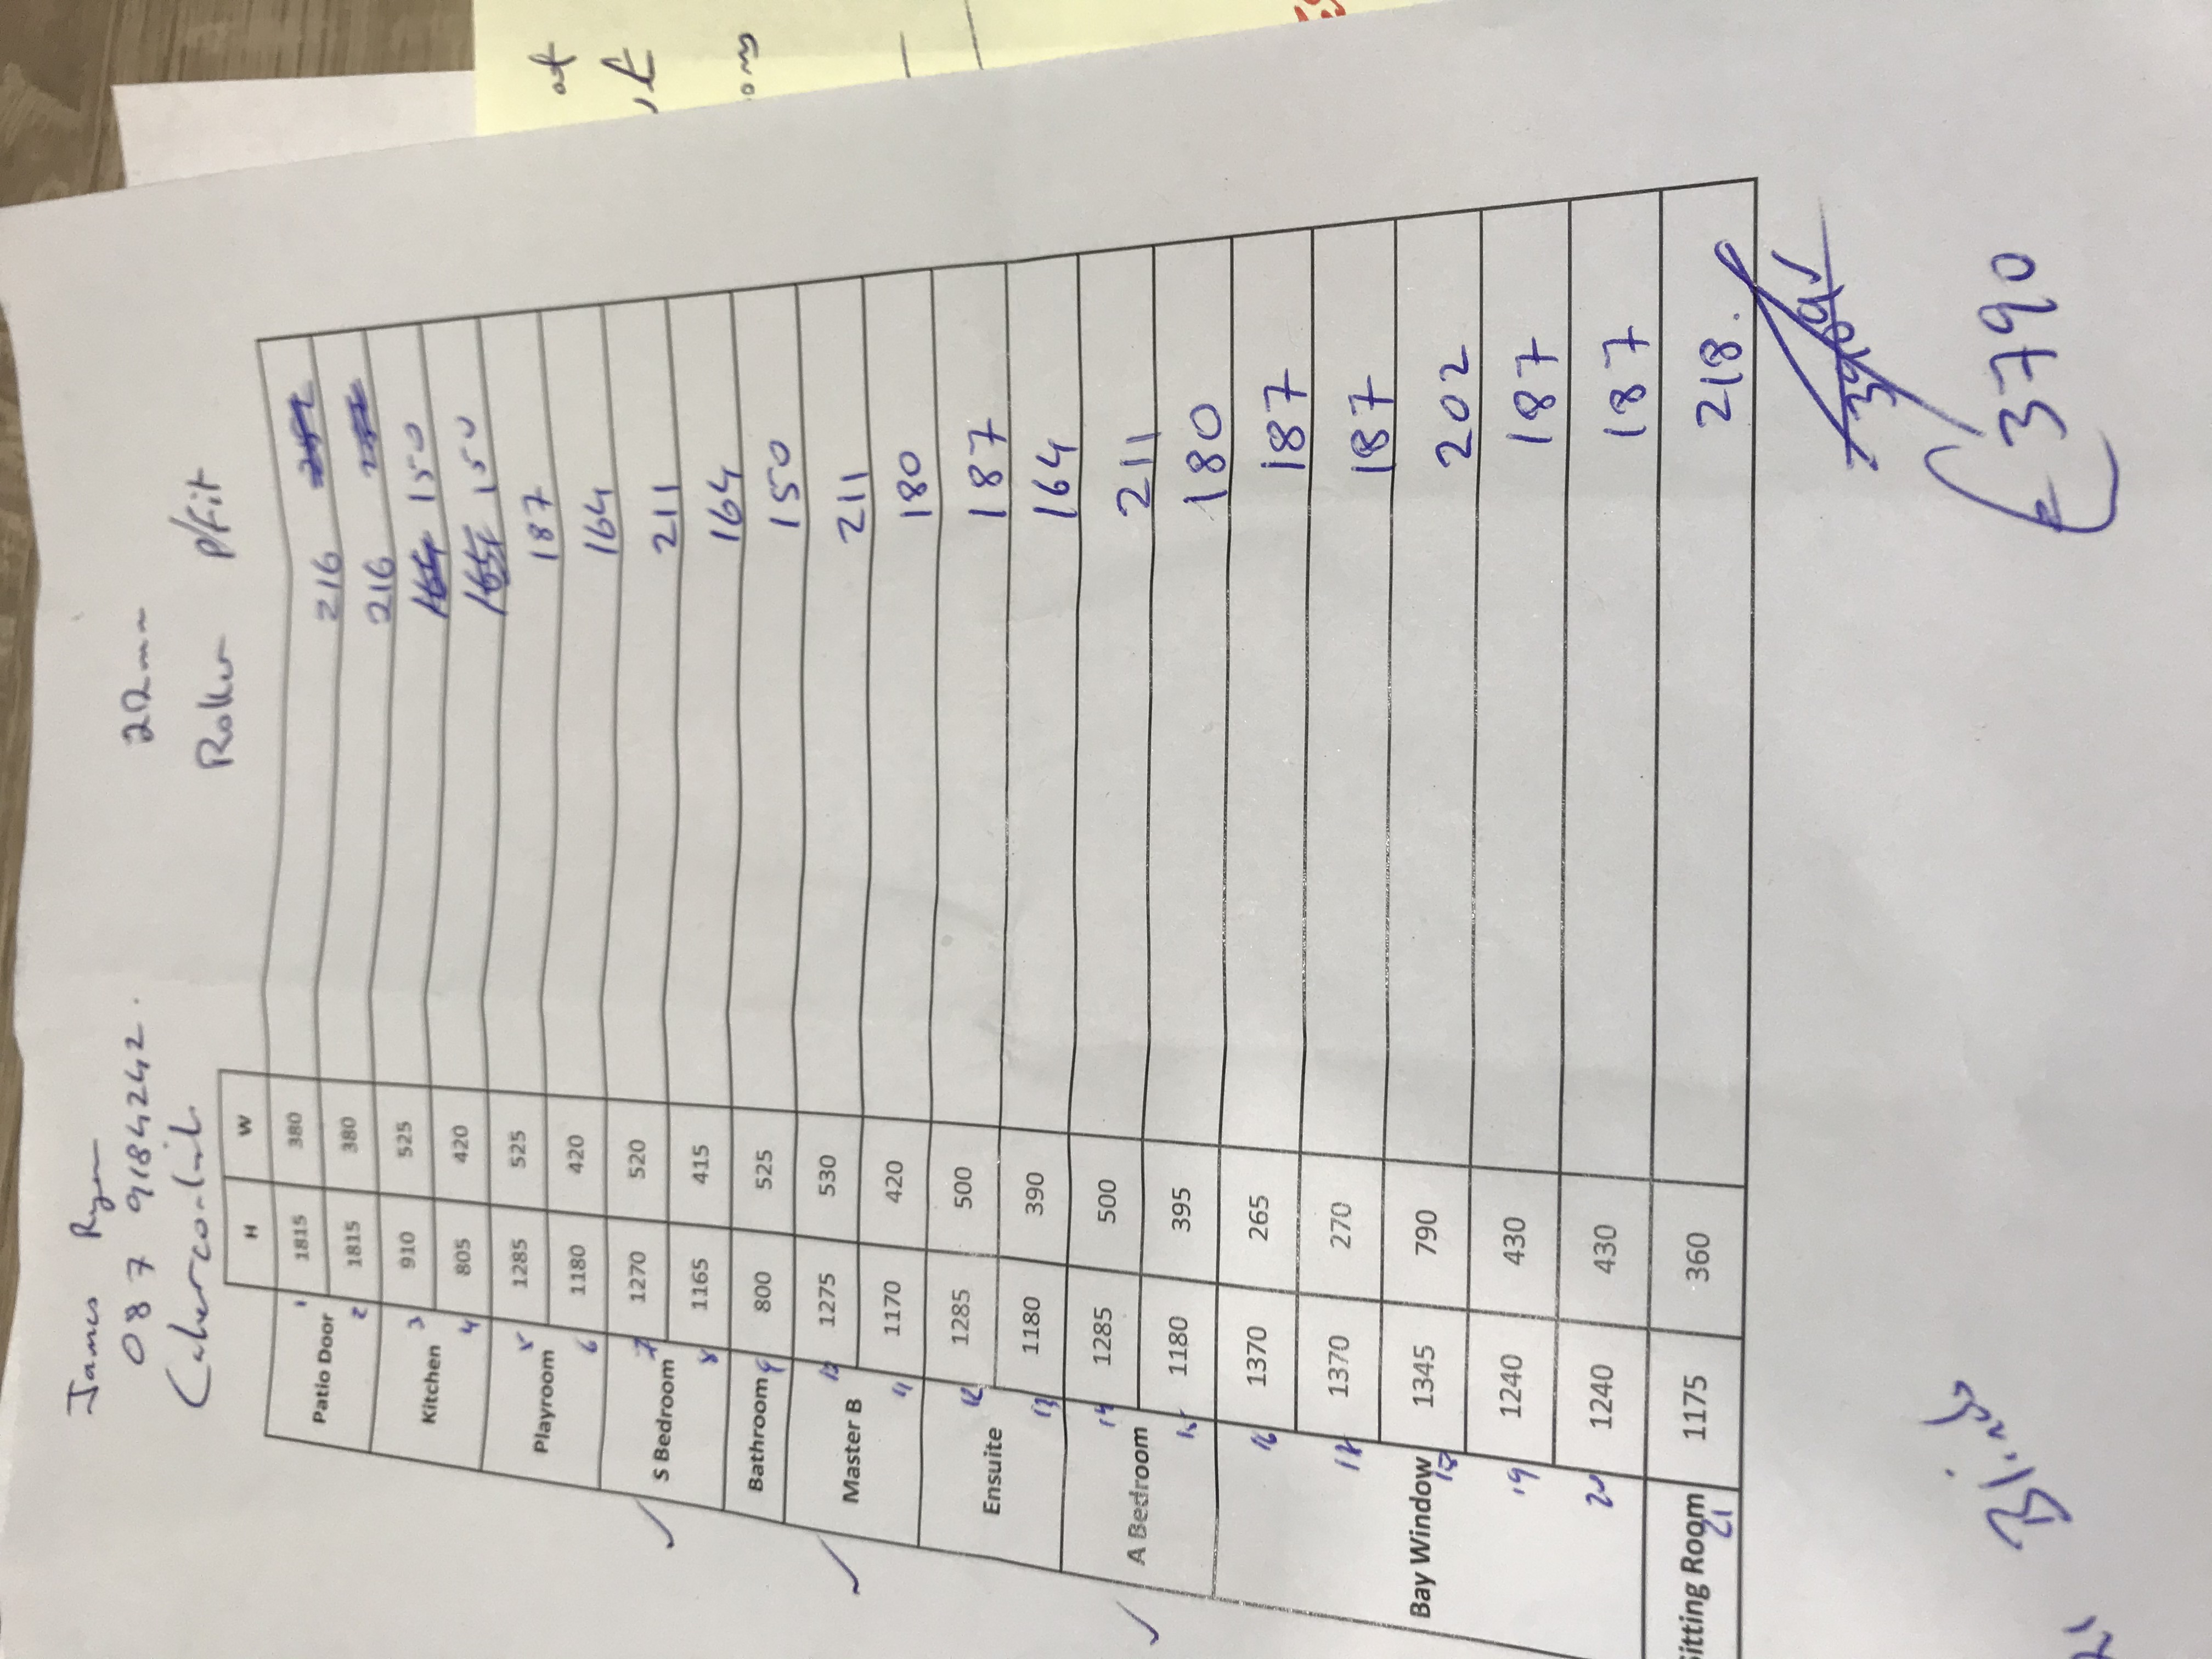 James Ryan
087 9184242.
22mm
Roller P/Fit
H W
Patio Door 1 1815 380 216
2 1815 380 216
Kitchen 3 910 525 164 150
4 805 420 150
Playroom 5 1285 525 187
6 1180 420 164
S Bedroom 7 1270 520 211
8 1165 415 164
Bathroom 9 800 525 150
Master B 10 1275 530 211
11 1170 420 180
Ensuite 12 1285 500 187
13 1180 390 164
A Bedroom 14 1285 500 211
15 1180 395 180
Bay Window 16 1370 265 187
17 1370 270 187
18 1345 790 202
19 1240 430 187
20 1240 430 187
Sitting Room 21 1175 360 218.
€3790